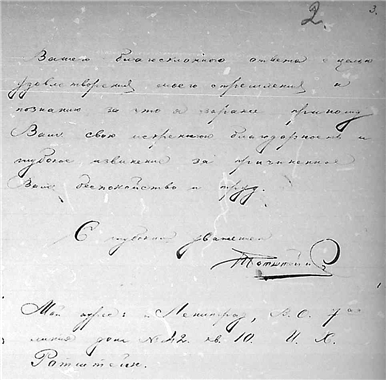 2. 3.
Вашего благосклонного ответа с целью
удовлетворения моего стремления к
познанию за что я заранее приношу
Вам свою искреннюю благодарность и
глубокое извинение за причиненное
Вам беспокойство и труд.
С глубоким уважением
Ротштейн
Мой адрес: г. Ленинград, В.О. 7ая
линия дом № 42 кв. 10. И. Х.
Ротштейн.